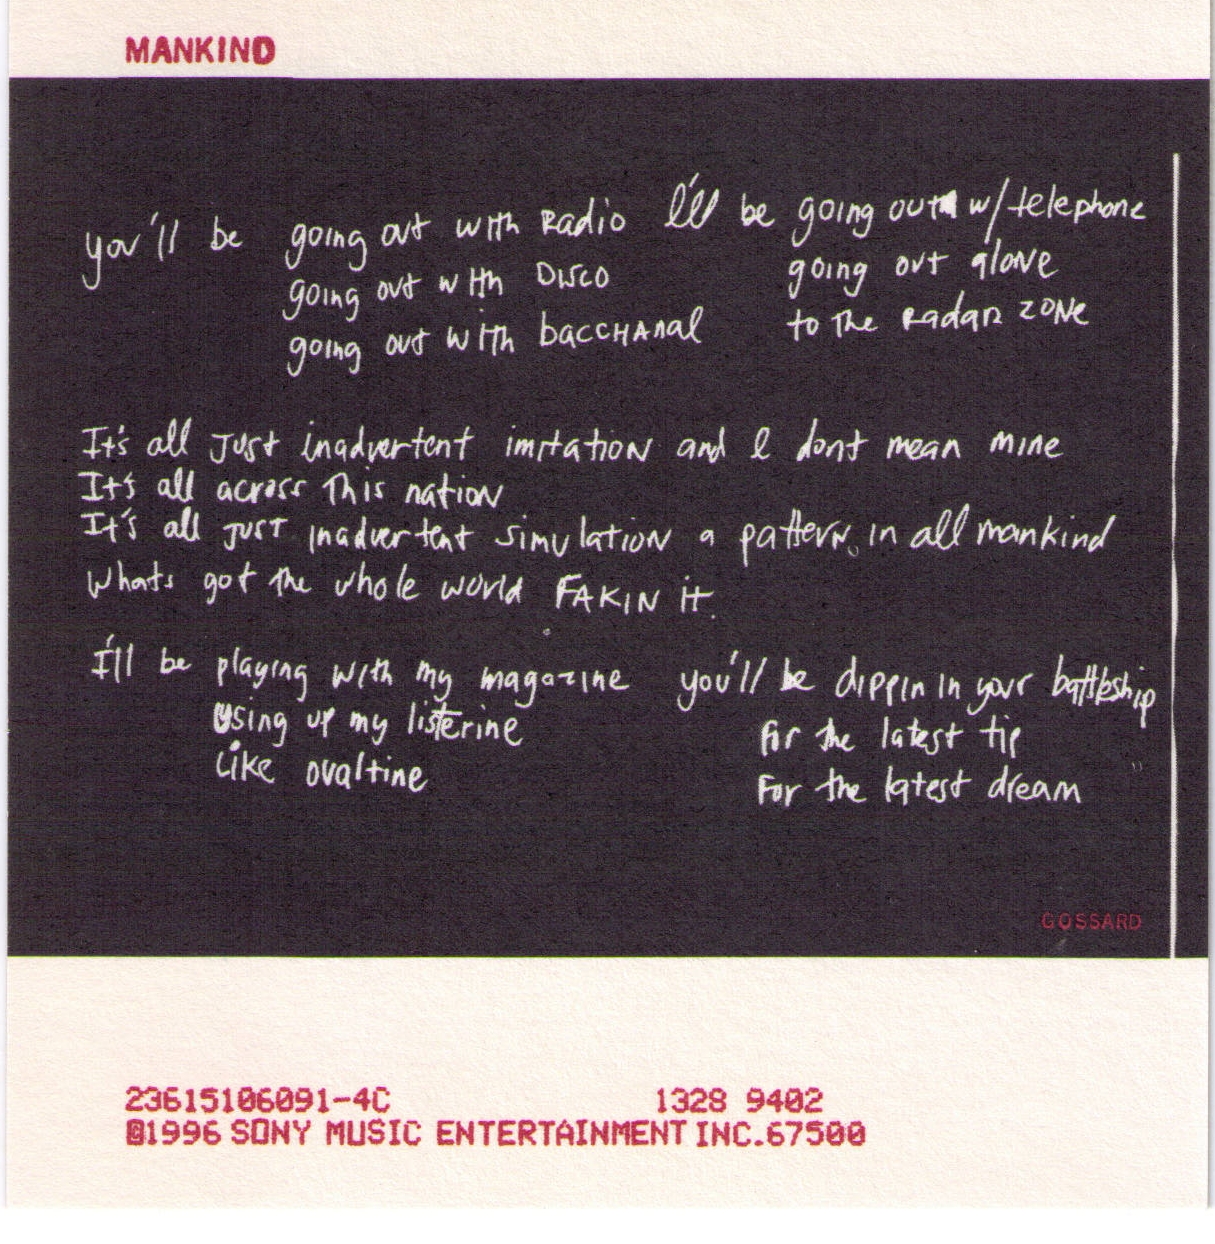 MANKIND
you'll be going out with Radio I'll be going out w/ telephone
going out with DISCO going out alone
going out with bacCHAnal to the Radar ZONE
It's all just inadvertent imitation and I dont mean mine
It's all across this nation
It's all JUST inadvertent simulation a pattern in all mankind
Whats got the whole world FAKIN it.
I'll be playing with my magazine you'll be dippin in your battleship
using up my listerine for the latest tip
Like ovaltine for the latest dream
GOSSARD
23615106091-4C 1328 9402
©1996 SONY MUSIC ENTERTAINMENT INC.67500